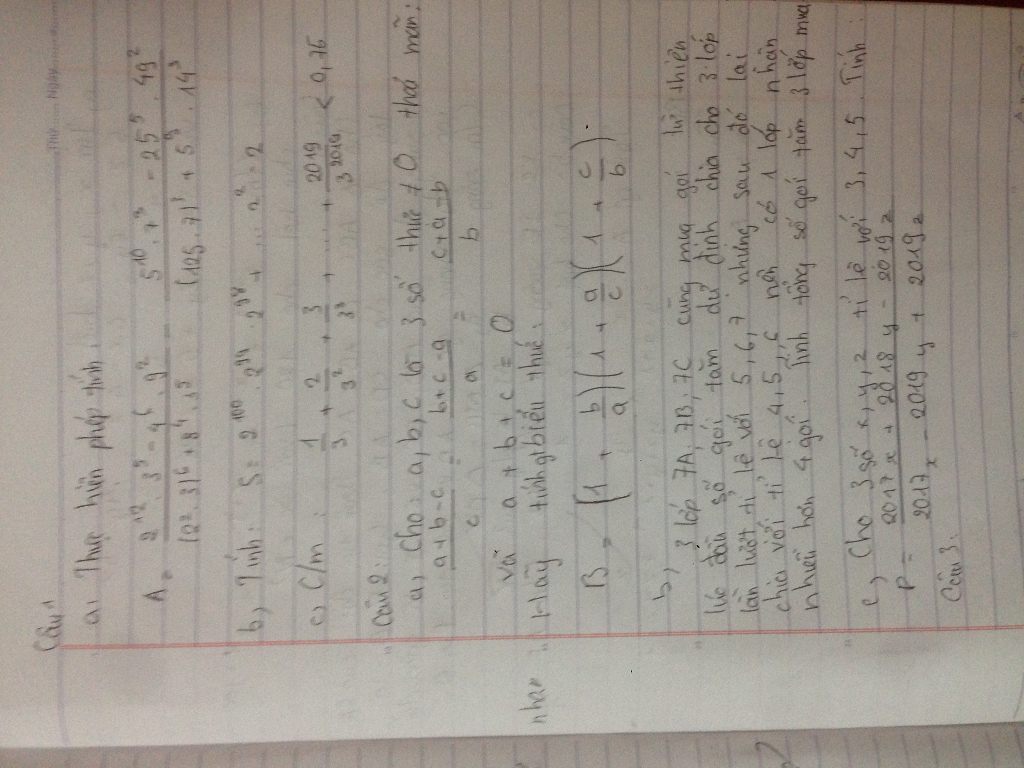 Thứ Ngày
Câu 1
a, Thực hiện phép tính.
A = 2^12 . 3^5 - 4^6 . 9^2 / (2^2 . 3)^6 + 8^4 . 3^5 - 5^10 . 7^3 - 25^5 . 49^2 / (125 . 7)^3 + 5^9 . 14^3
b, Tính: S = 2^100 . 2^99 . 2^98 + ... 2^2 - 2
c, C/m : 1/3 + 2/3^2 + 3/3^3 + ... + 2019/3^2019 < 0,75
Câu 2:
a, Cho a, b, c là 3 số thực ≠ 0 thoả mãn:
a + b - c / c = b + c - a / a = c + a - b / b
và a + b + c = 0
Hãy tính gt biểu thức.
nhan
B = (1 + b/a)(1 + a/c)(1 + c/b)
b, 3 lớp 7A, 7B, 7C cùng mua gói từ thiện
lúc đầu số gói tăm dự định chia cho 3 lớp
lần lượt tỉ lệ với 5, 6, 7 nhưng sau đó lại
chia với tỉ lệ 4, 5, 6 nên có 1 lớp nhận
nhiều hơn 4 gói. Tính tổng số gói tăm 3 lớp mua
c, Cho 3 số x, y, z tỉ lệ với 3, 4, 5. Tính:
P = 2017x + 2018y - 2019z / 2017x - 2019y + 2019z
Câu 3.